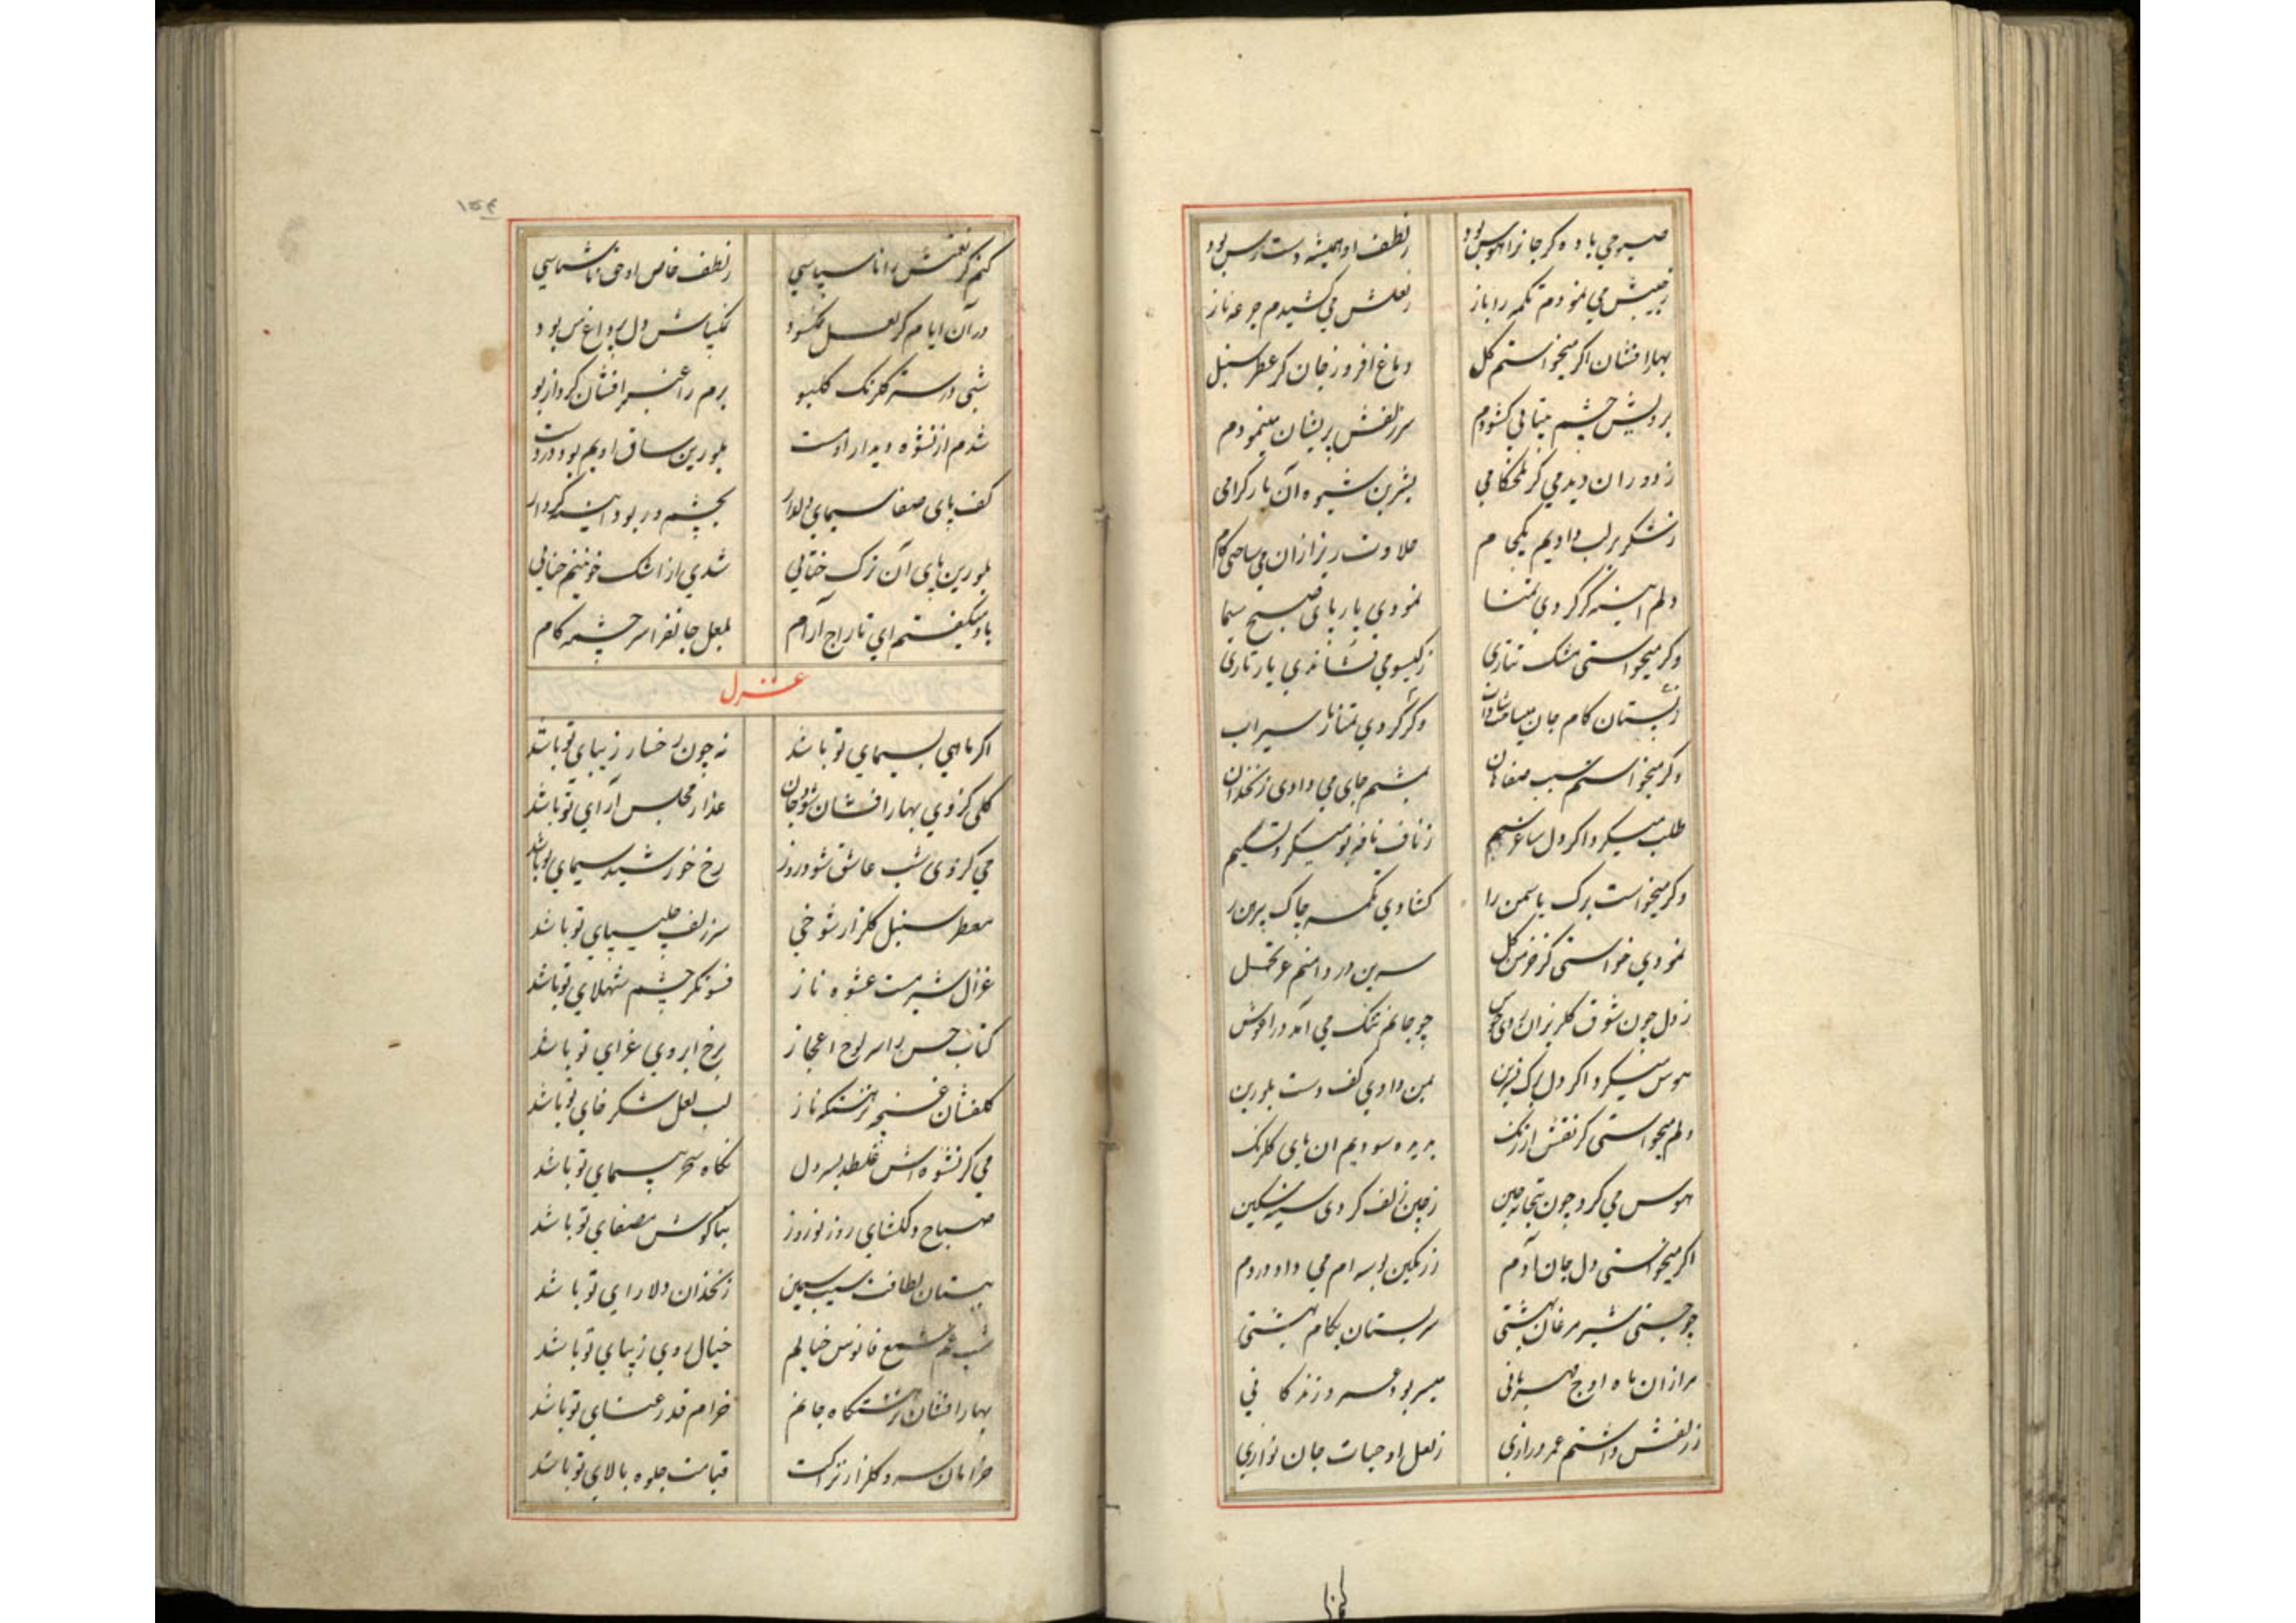 صبوحی باده کر جانرا هوس بود ز لطف او همیشه دست رس بود
ز جیبش می نمودم تکمه را باز ز لعلش می کشیدم جرعه ناز
بهار افشان اکر میخواستم کل دماغ افروز جان کر عطر سنبل
برویش چشم بیتابی کشودم سر زلفش پریشان مینمودم
ز دوران دیدمی کر تلخکامی بشیرین شیوه آن یار کرامی
ز شکر بر لب دادیم یکجام حلاوت ریز ازان می ساختی کام
دلم آیینه کر کردی تمنا نمودی یار پای صبح سیما
وکر میخواستی مشک تتاری ز کیسو می فشاندی یار تاری
ز بستان کام جان وکر کردی تمنا سیراب
وکر میخواستم سیب صفاهان بشم جای می دادی زنخدان
طلب میکرد اکر دل ساغر سیم ز ناف نافه بو میکرد تسلیم
وکر میخواست برک یاسمن را کشادی تکمه چاک پیرهن را
نمودی خواستی کر خرمن کل سرین در دامنم عرض تجمل
ز دل چون شوق کلریزان زدی جوش چو جانم تنک می آمد در آغوش
هوس میکرد اکر دل برک نسرین بمن دادی کف دست بلورین
دلم میخواستی کر نقش ارژنک بدیده سودیم آن پای کلرنک
هوس می کرد چون بتخانه چین ز چین زلف کردی سینه مشکین
اکر میخواستی دل جان آدم ز رنکین بوسه ام می داد در دم
چو جستی شیر مرغان بهشتی سر پستان بکام بهشتی
مرا زان ماه اوج مهربانی میسر بود عمر و زندکانی
ز زلفش داشتم عمر درازی ز لعل او حیات جان نوازی
کنم
کنم کر نعمتش را ناسپاسی ز لطف خاص او حق ناشناسی
در آن ایام کر لعل نمکسود نمکپاش دل پر داغ من بود
شبی دسته کلرنک کلبو برم را عنبر افشان کرد از بو
شدم از نشوه دیدار او مست بلورین ساق او هم بود در دست
کف پای صفا سیمای دلدار بچشم در بود آیینه کردار
بلورین پای آن ترک ختائی شدی از اشک خونینم حنائی
باو میکفتم ای تاراج آرام لعل جانفزا سر چشمه کام
غزل
اکر ماهی بسیمای تو باشد نه چون رخسار زیبای تو باشد
کلی کز وی بهار افشان شود جان عذار مجلس آرای تو باشد
می کز وی شب عاشق شود روز رخ خورشید سیمای تو باشد
معطر سنبل کلزار شوخی سر زلف چلیپای تو باشد
غزال شیر مست عشوه ناز فسونکر چشم شهلای تو باشد
کتاب حسن را سر لوح اعجاز برخ ابروی غرای تو باشد
کلفشان غنچه ناز لب لعل شکر خای تو باشد
می کز نشوه اش غلطد بسر دل نکاه سحر پیمای تو باشد
صباح دلکشای روز نوروز بناکوش مصفای تو باشد
ببستان لطافت سیب سیمین زنخدان دلارای تو باشد
شب غم شمع فانوس خیالم خیال روی زیبای تو باشد
بهار افشان جانم خرام قد رعنای تو باشد
خرامان سرو کلزار نزاکت قیامت جلوه بالای تو باشد